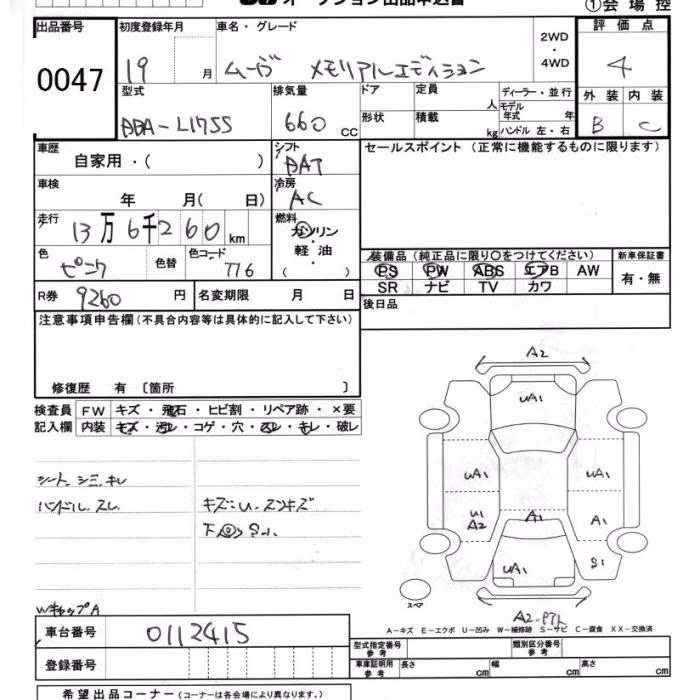 オークション出品申込書
①会場控
出品番号
0047
初度登録年月
19 月
車名・グレード
ムーヴ メモリアルエディション
2WD
・
4WD
評価点
4
型式
DBA-L175S
排気量
660 CC
ドア
定員
人
形状
積載
kg
ディーラー・並行
モデル年式 年
ハンドル 左・右
外装 内装
B C
車歴
自家用・( )
シフト
DAT
セールスポイント (正常に機能するものに限ります)
車検
年 月( 日)
冷房
AC
走行
13万6千260 km
燃料
ガソリン
・
軽油
( )
色
ピンク
色替
色コード
776
装備品 (純正品に限り○をつけてください)
新車保証書
PS PW ABS エアB AW
SR ナビ TV カワ
有・無
R券 9260 円
名変期限 月 日
後日品
注意事項申告欄 (不具合内容等は具体的に記入して下さい)
修復歴 有 〔箇所 〕
検査員記入欄
FW キズ・飛石・ヒビ割・リペア跡・×要
内装 キズ・汚レ・コゲ・穴・スレ・キレ・破レ
シート シミ、キレ
ハンドル、スレ
キズ:U、スリキズ
下回りS小
WキャップA
A2
UA1
UA1
UA1
U1
A2
A1
A1
UA1
S1
スペア
A2-P7L
A-キズ E-エクボ U-凹み W-補修跡 S-サビ C-腐食 XX-交換済
車台番号 0112415
型式指定番号
参考
類別区分番号
参考
登録番号
車庫証明用
参考
長さ cm
幅 cm
高さ cm
希望出品コーナー (コーナーは各会場により異なります。)